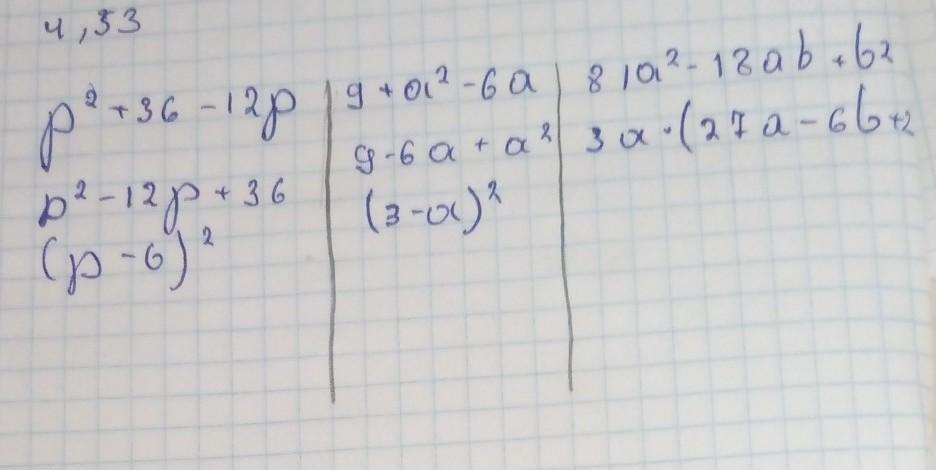 4,53
p² + 36 - 12p
p² - 12p + 36
(p - 6)²
9 + a² - 6a
9 - 6a + a²
(3 - a)²
81a² - 18ab + b²
3a · (27a - 6b + 2